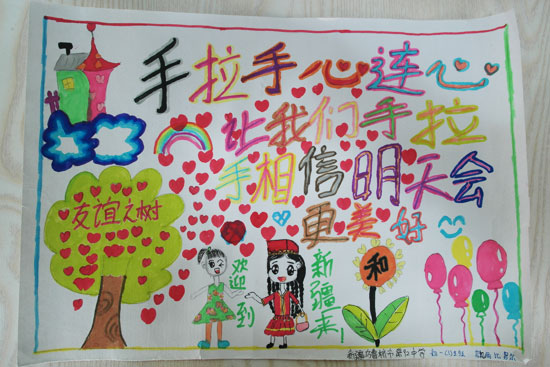 手拉手心连心
让我们手拉
手相信明天会
更美好
友谊之树
欢迎到
新疆来!
和